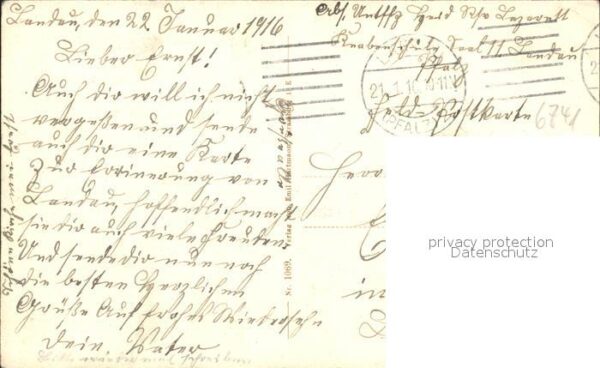 Landau, den 22 Januar 1916
Lieber Ernst!
Auch dir will ich nicht
vergeßen und sende
auch dir eine Karte
Zur Erinnerung von
Landau, hoffendlich macht
sie dir auch viele Freuden.
Und sende dir nun noch
die besten Herzlichen
Grüße Auf frohes Wiedersehn
Dein Vater
Abs. Untffz Res Lazarett
Knabenschule Saal 11 Landau
Pfalz
Feld-Postkarte
6741
(PFALZ)
Nr. 1069. Verlag von Emil Hartmann,
Herr
privacy protection
Datenschutz